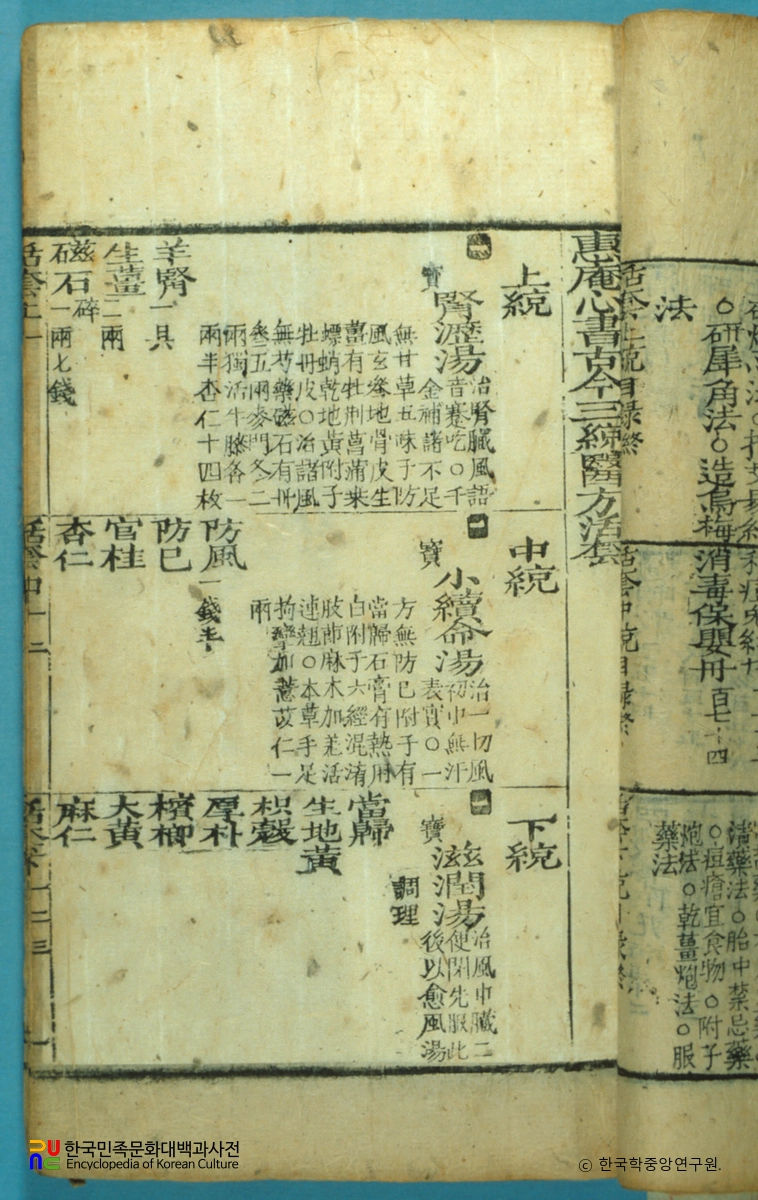 ○研犀角法○造烏梅
法
活套上統目錄終
消毒保嬰丹 百七十四
活套中統目錄終
清藥法○胎中禁忌藥
○痘瘡宜食物○附子
炮法○乾薑炮法○服
藥法
惠庵心書古今三統醫方活套
上統
一
寶
腎瀝湯
治腎臟風語
音蹇吃○千
金補諸不足
無甘草五味子防
風玄參地骨皮生
薑有牡荊菖蒲桒
螵蛸乾地黃附子
牡丹皮○治諸風
無芍藥磁石有丹
參五兩麥門冬二
兩獨活牛膝各一
兩半杏仁十四枚
羊腎一具
生薑二兩
磁石碎一兩七錢
中統
一
寶
小續命湯
治一切風
初中無汗
表實○一
方無防己附子有
當歸石膏有熱用
白附子六經混淆
肢莭麻木加羌活
連翹○本草手足
拘攣加薏苡仁一
兩
防風一錢半
防己
官桂
杏仁
下統
一
寶
滋潤湯
治風中臟二
便閉先服此
後以愈風湯
調理
當歸
生地黃
枳殼
厚朴
檳榔
大黃
麻仁
한국민족문화대백과사전
Encyclopedia of Korean Culture
© 한국학중앙연구원.